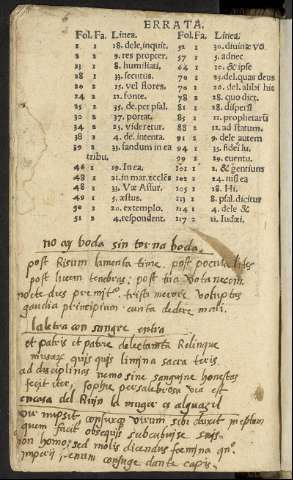 ERRATA.
Fol. Fa. Linea. Fol. Fa. Linea.
2 1 18. dele, inquit. 52 1 30. diuinæ vo
2 2 9. res propter. 57 1 5. adnec
23 1 8. humiliati. 64 1 10. & ipse
28 1 33. secutus. 70 2 25. del. quas deus
20 2 15. vel flores. 70 2 20. del. alibi hic
24 2 12. fonte. 78 2 18. quo dict.
25 2 35. de. per psal. 81 2 28. dispersi
30 2 37. portat. 85 2 11. prophetarū
34 2 25. videretur. 88 2 12. ad statum.
38 2 4. de. intenta. 91 2 9. dele autem
39 2 33. sandum in ea 94 2 33. fidei lu.
tribu. 99 2 29. euentu.
46 1 19. In ea. 101 2 1. & gentiuns
48 1 21. in mar. eccles 102 2 24. iussi ea
48 2 33. Væ Assur. 103 2 18. Hi.
49 2 5. æstus. 113 2 8. psal. dicitur
50 2 20. extemplo. 114 2 4. dele &
51 2 4. respondent. 117 2 11. Iudæi.
no ay boda sin torna boda.
post Risum lamenta time. post pocula lites
post lucem tenebras; post tua vota necem
nocte dies premitᵉ. tristi merore voluptas
gaudia principium. cunta dedere mali.
la letra con sangre entra
et patris et patriæ delectamta Relinque
musarꝫ quis quis limina sacra teris
ad disciplinas nemo sine sanguine honestas
fecit iter, sophiæ per salebrosa via est
en casa del Ruyn la muger es alguazil
vir nupsit, vxorꝫ virum sibi duxit
quem facit obsequiis subcubuisse suis
non homo, sed molis dicendus fæmina
imperii, enim coniuge dante capis.